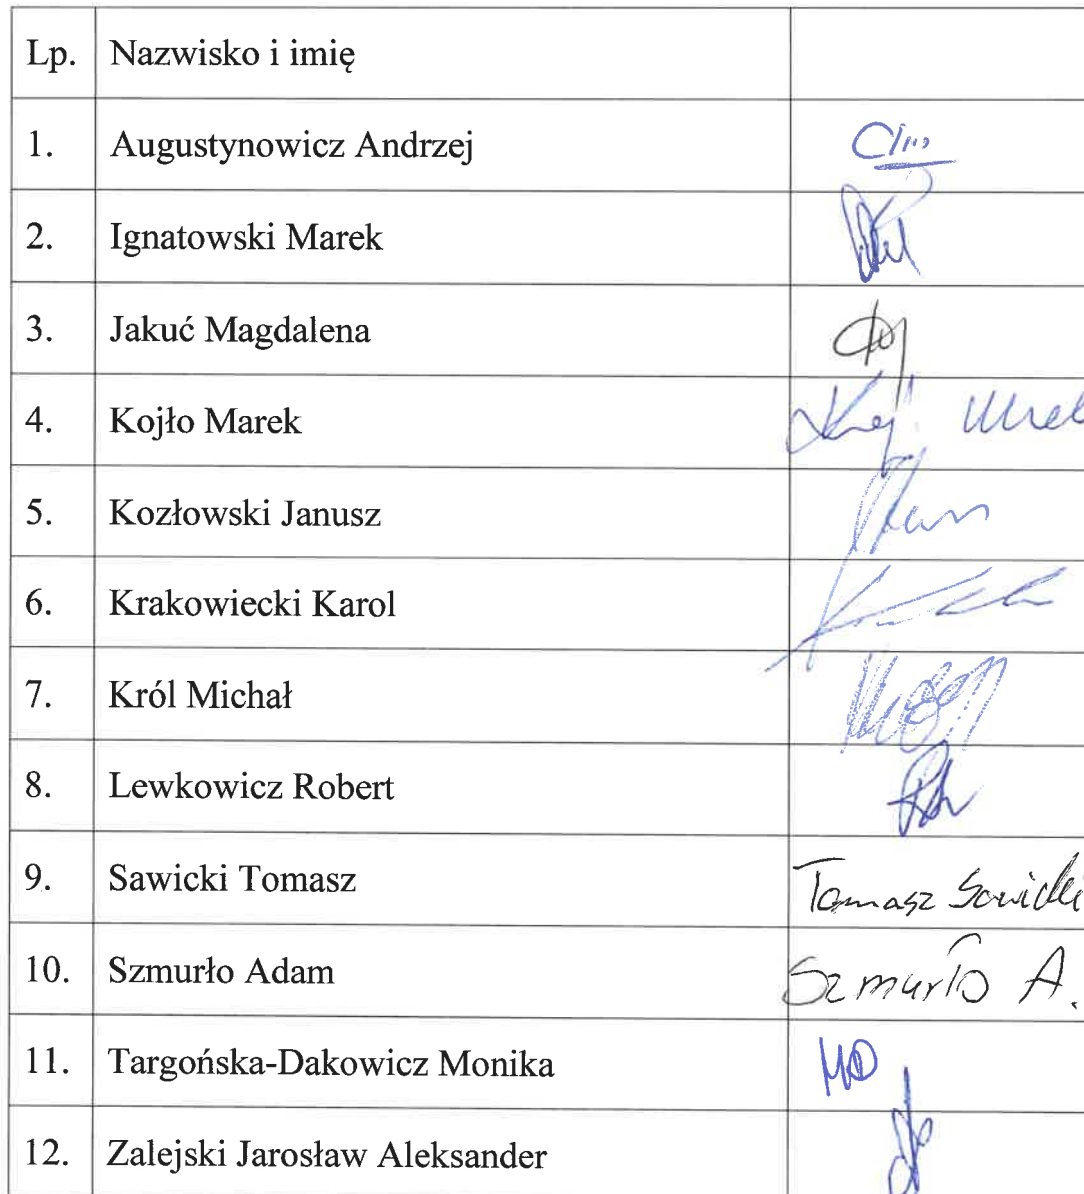 Lp. Nazwisko i imię
1. Augustynowicz Andrzej
2. Ignatowski Marek
3. Jakuć Magdalena
4. Kojło Marek
5. Kozłowski Janusz
6. Krakowiecki Karol
7. Król Michał
8. Lewkowicz Robert
9. Sawicki Tomasz Tomasz Sawicki
10. Szmurło Adam Szmurło A.
11. Targońska-Dakowicz Monika MD
12. Zalejski Jarosław Aleksander